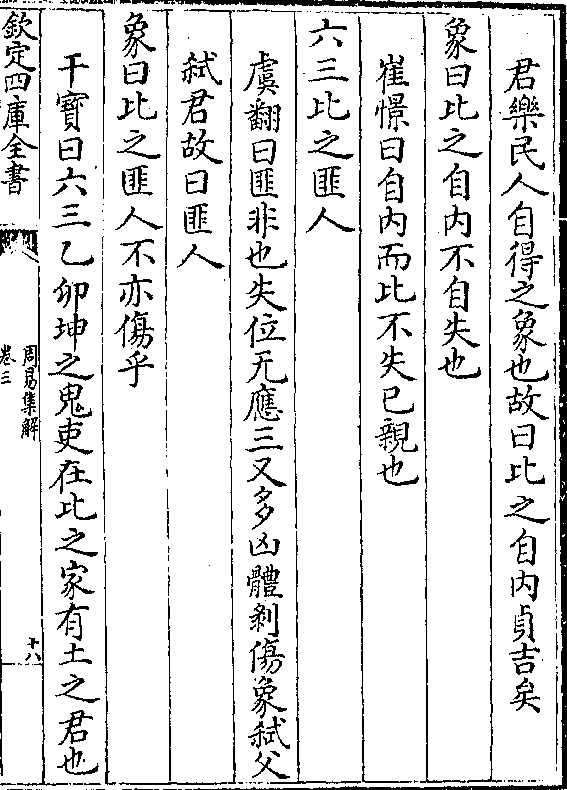 君樂民人自得之象也故曰比之自内貞吉矣
象曰比之自内不自失也
崔憬曰自内而比不失己親也
六三比之匪人
虞翻曰匪非也失位无應三又多凶體剝傷象弑父
弑君故曰匪人
象曰比之匪人不亦傷乎
干寶曰六三乙卯坤之鬼吏在比之家有土之君也
欽定四庫全書
周易集解
卷三
十八